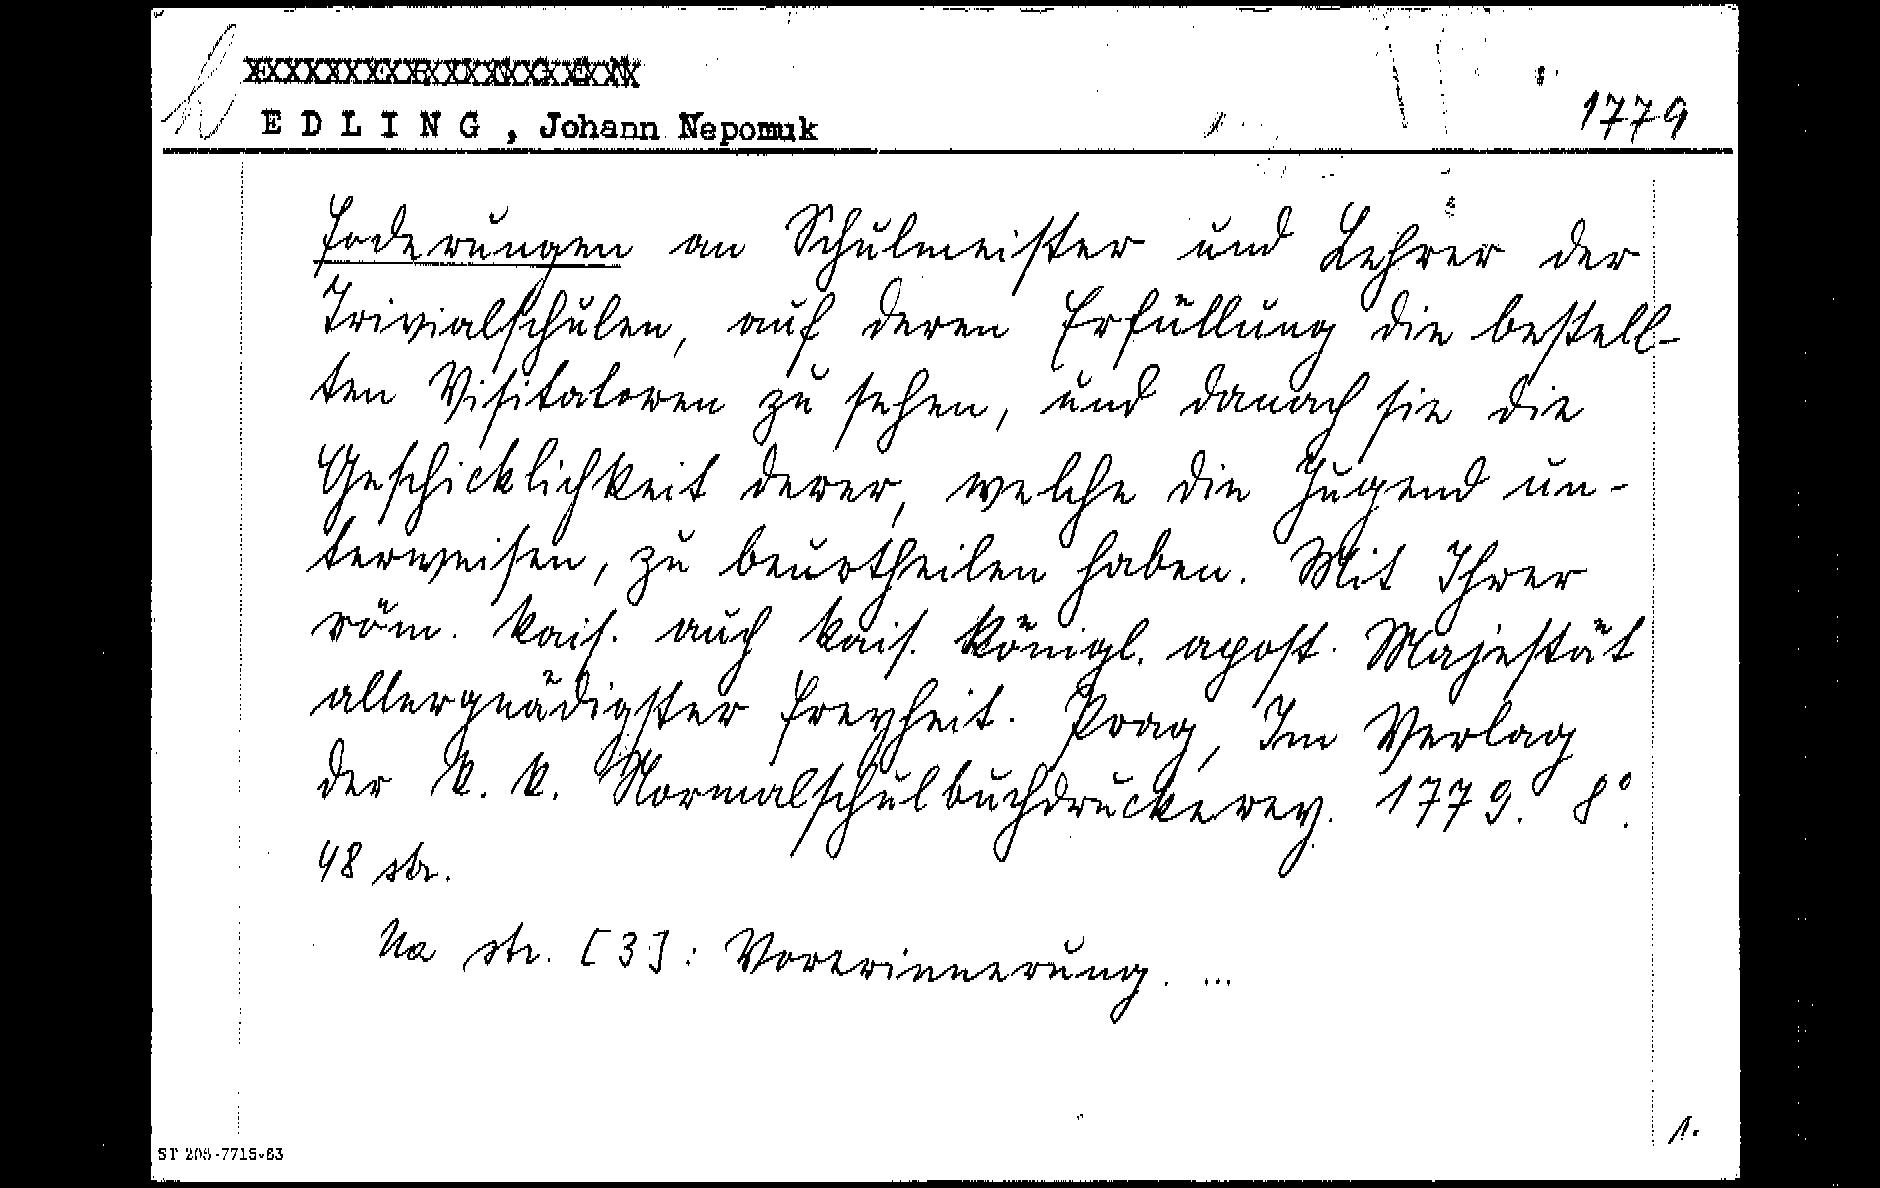 EDLING, Johann Nepomuk
1779
Foderungen an Schulmeister und Lehrer der
Trivialschulen, auf deren Erfüllung die bestell-
ten Visitatoren zu sehen, und danach sie die
Geschicklichkeit derer, welche die Jugend un-
terweisen, zu beurtheilen haben. Mit Ihrer
röm. kais. auch kais. königl. apost. Majestät
allergnädigster Freyheit. Prag, Im Verlag
der k. k. Normalschulbuchdruckerey. 1779. 8°.
48 str.
Na str. [3]: Vorerinnerung. ...
1.
ST 208-7715-63